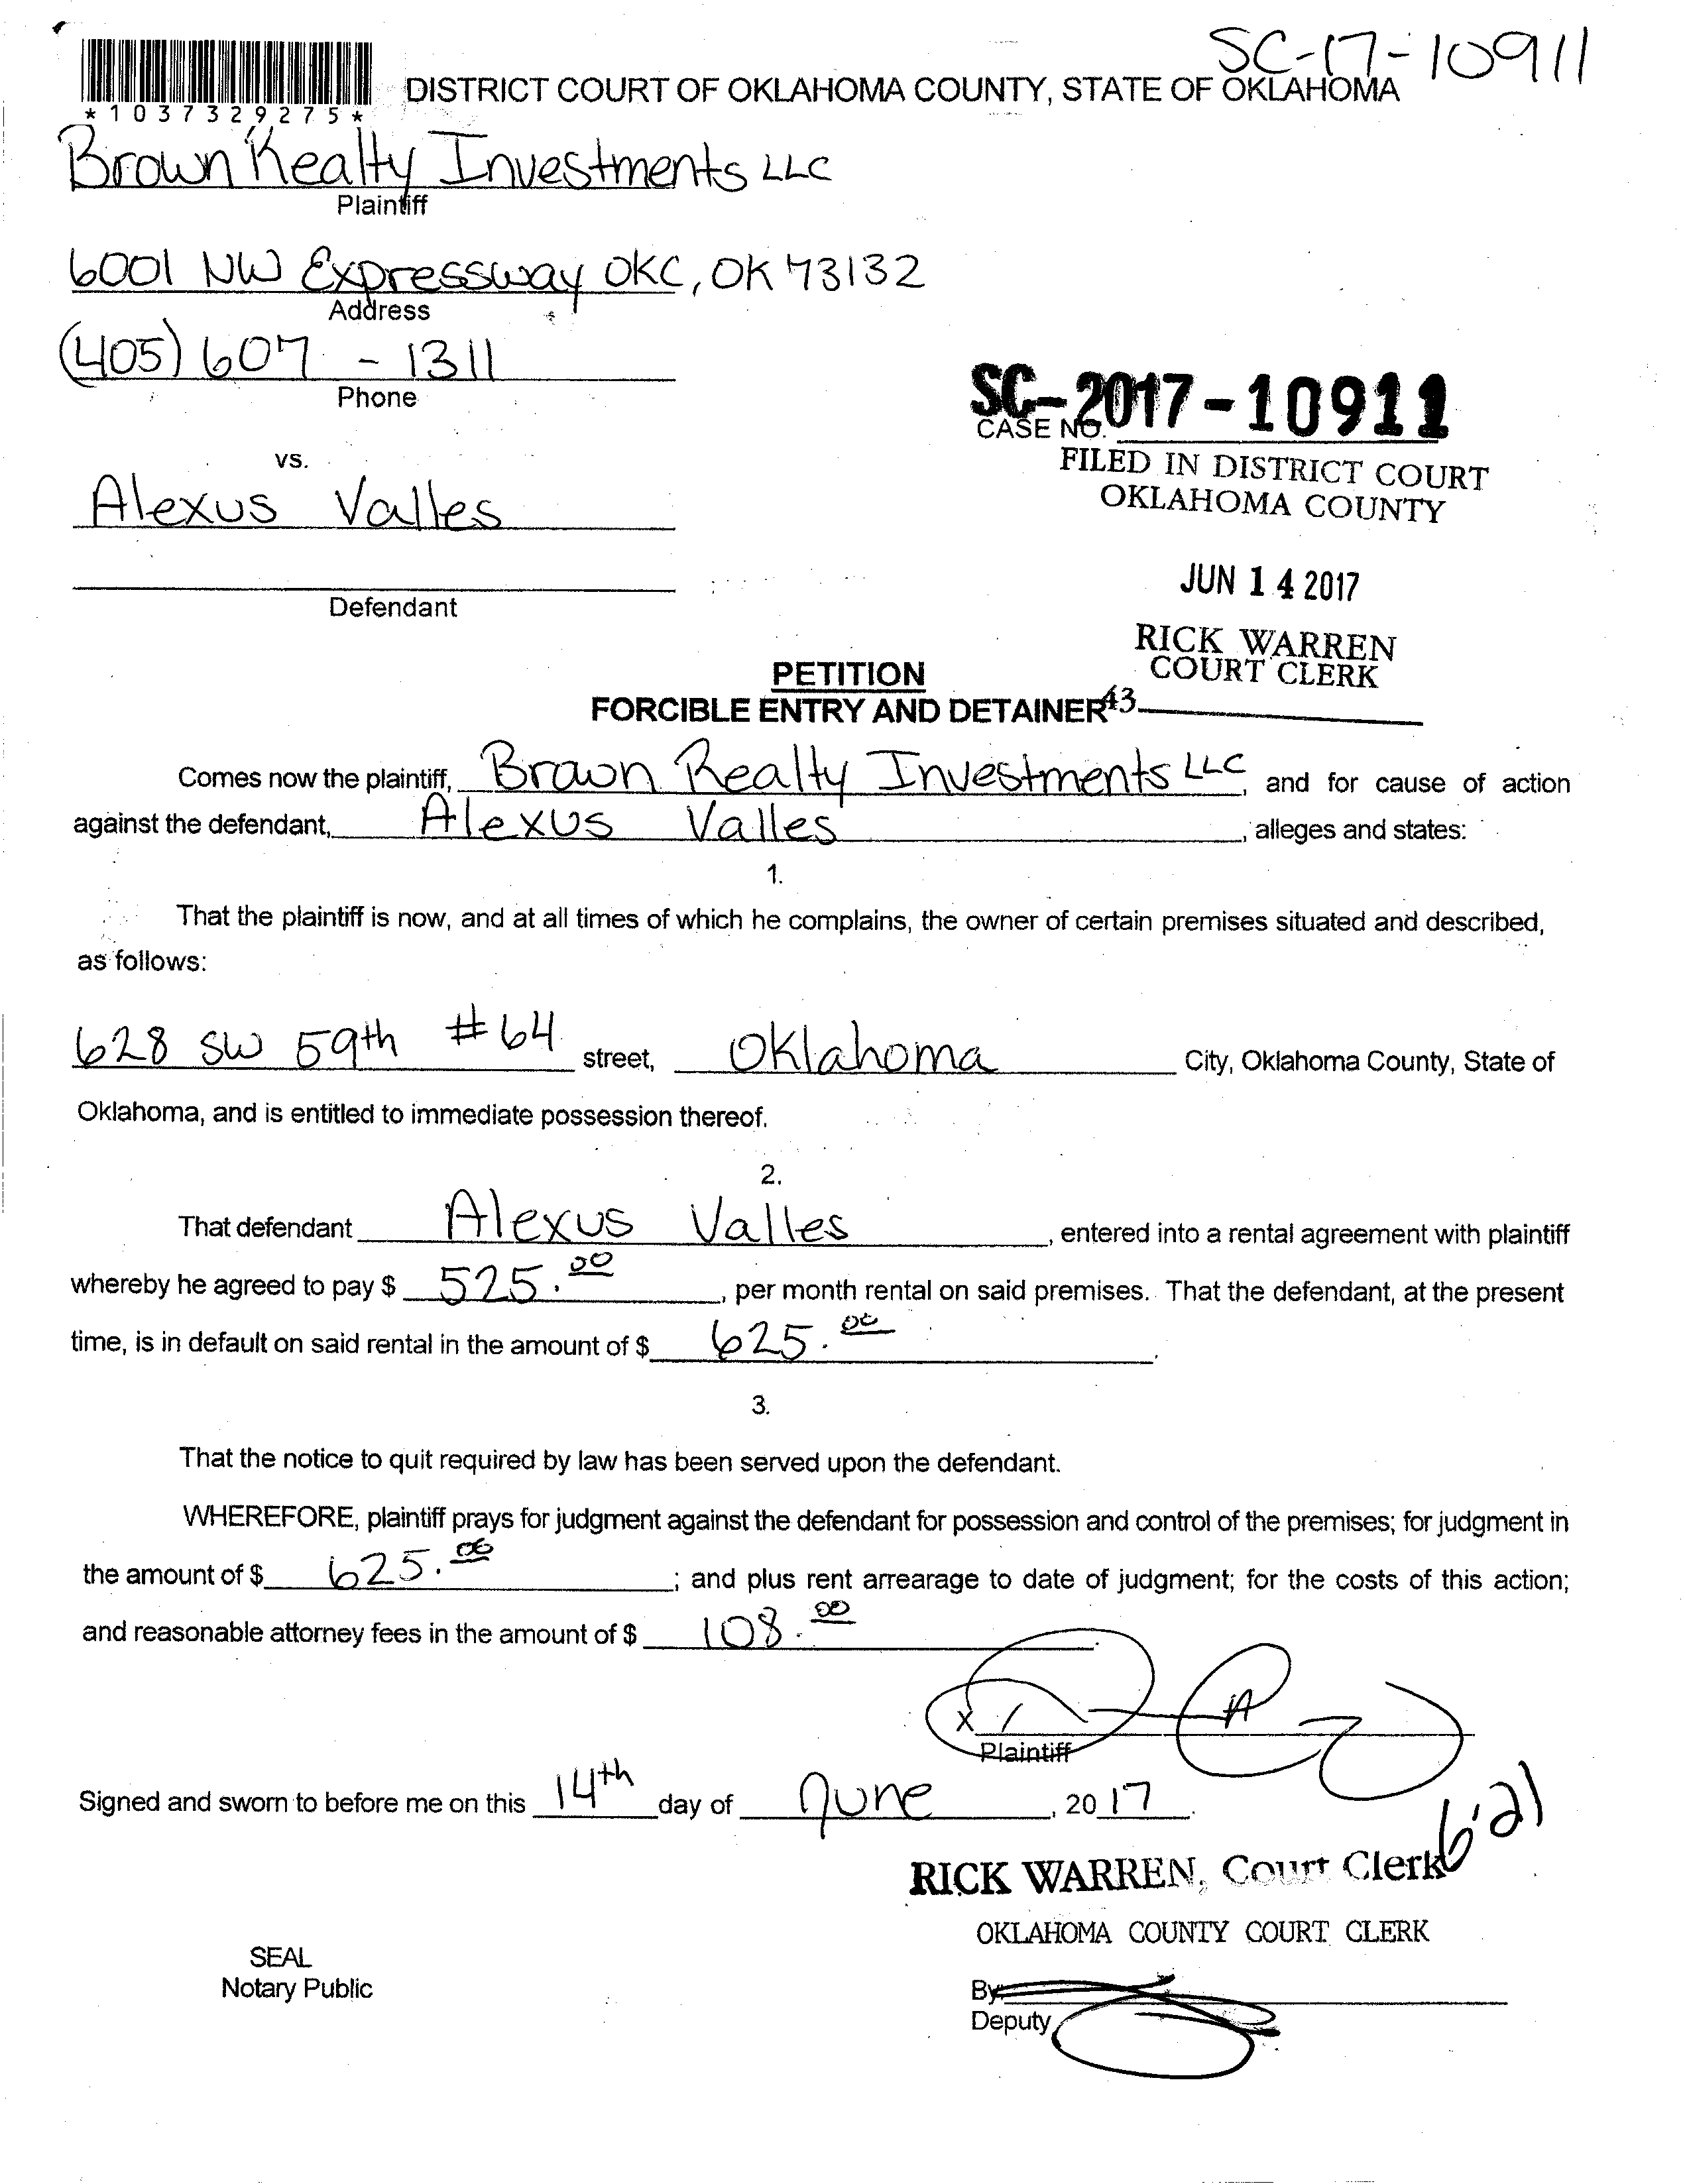 SC-17-10911
DISTRICT COURT OF OKLAHOMA COUNTY, STATE OF OKLAHOMA
*1037329275*
Brown Realty Investments LLC
Plaintiff
6001 NW Expressway OKC, OK 73132
Address
(405) 607 - 1311
Phone
SC-2017-10911
CASE NO.
FILED IN DISTRICT COURT
OKLAHOMA COUNTY
vs.
Alexus Valles
JUN 14 2017
Defendant
RICK WARREN
COURT CLERK
PETITION
FORCIBLE ENTRY AND DETAINER
43
Comes now the plaintiff, Brown Realty Investments LLC, and for cause of action
against the defendant, Alexus Valles, alleges and states:
1.
That the plaintiff is now, and at all times of which he complains, the owner of certain premises situated and described,
as follows:
628 SW 59th #64 street, Oklahoma City, Oklahoma County, State of
Oklahoma, and is entitled to immediate possession thereof.
2.
That defendant Alexus Valles, entered into a rental agreement with plaintiff
whereby he agreed to pay $ 525.00, per month rental on said premises. That the defendant, at the present
time, is in default on said rental in the amount of $ 625.00.
3.
That the notice to quit required by law has been served upon the defendant.
WHEREFORE, plaintiff prays for judgment against the defendant for possession and control of the premises; for judgment in
the amount of $ 625.00; and plus rent arrearage to date of judgment; for the costs of this action;
and reasonable attorney fees in the amount of $ 108.00.
X
Plaintiff
Signed and sworn to before me on this 14th day of June, 2017.
6.21
RICK WARREN, Court Clerk
OKLAHOMA COUNTY COURT CLERK
SEAL
Notary Public
By:
Deputy